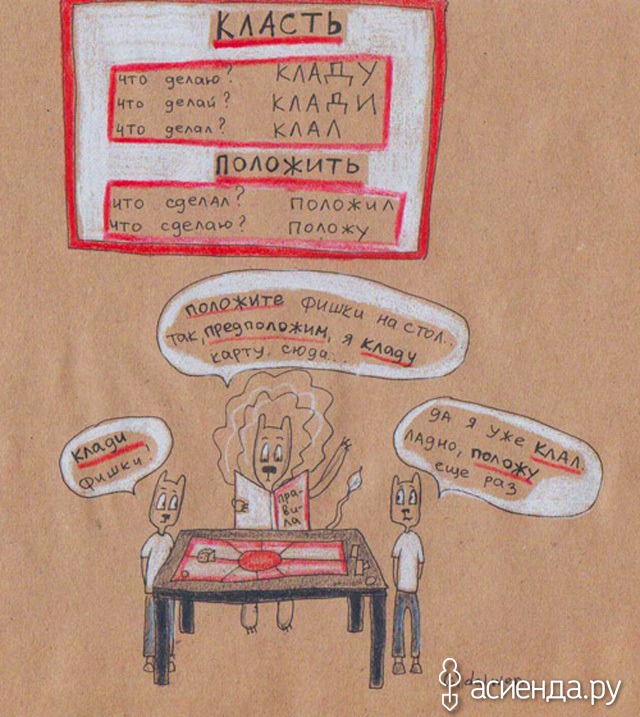 КЛАСТЬ
что делаю? КЛАДУ
что делай? КЛАДИ
что делал? КЛАЛ
ПОЛОЖИТЬ
что сделал? ПОЛОЖИЛ
что сделаю? ПОЛОЖУ
положите фишки на стол..
так, предположим, я кладу
карту, сюда...
клади
фишки!
да я уже клал.
ладно, положу
еще раз
пра-
ви-
ла
асиенда.ру